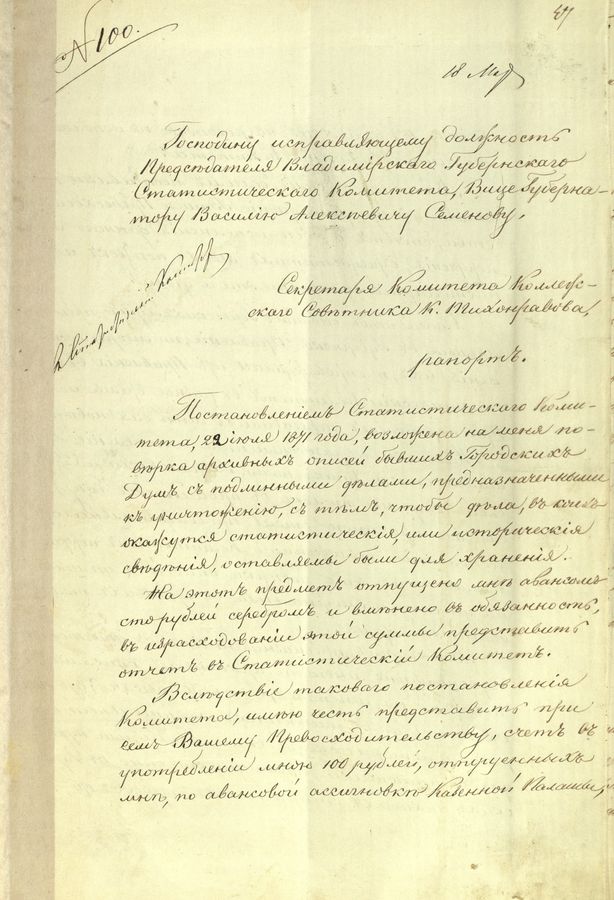 № 100.
18 Мая
Господину исправляющему должность
Председателя Владимірскаго Губернскаго
Статистическаго Комитета, Вице Губерна-
тору Василію Алексѣевичу Семенову,
Секретаря Комитета Коллеж-
скаго Совѣтника К. Тихонравова,
рапортъ.
Постановленіемъ Статистическаго Коми-
тета, 22 іюля 1871 года, возложена на меня по-
вѣрка архивныхъ описей бывшихъ Городскихъ
Думъ съ подлинными дѣлами, предназначенными
къ уничтоженію, съ тѣмъ, чтобы дѣла, въ коихъ
окажутся статистическія, или историческія
свѣдѣнія, оставляемы были для храненія.
На этотъ предметъ отпущено мнѣ авансомъ
сто рублей серебромъ и вмѣнено въ обязанность,
въ израсходованіи этой суммы представить
отчетъ въ Статистическій Комитетъ.
Вслѣдствіе таковаго постановленія
Комитета, имѣю честь представить при
семъ Вашему Превосходительству, счетъ въ
употребленіи мною 100 рублей, отпущенныхъ
мнѣ, по авансовой ассигновкѣ Казенной Палаты,